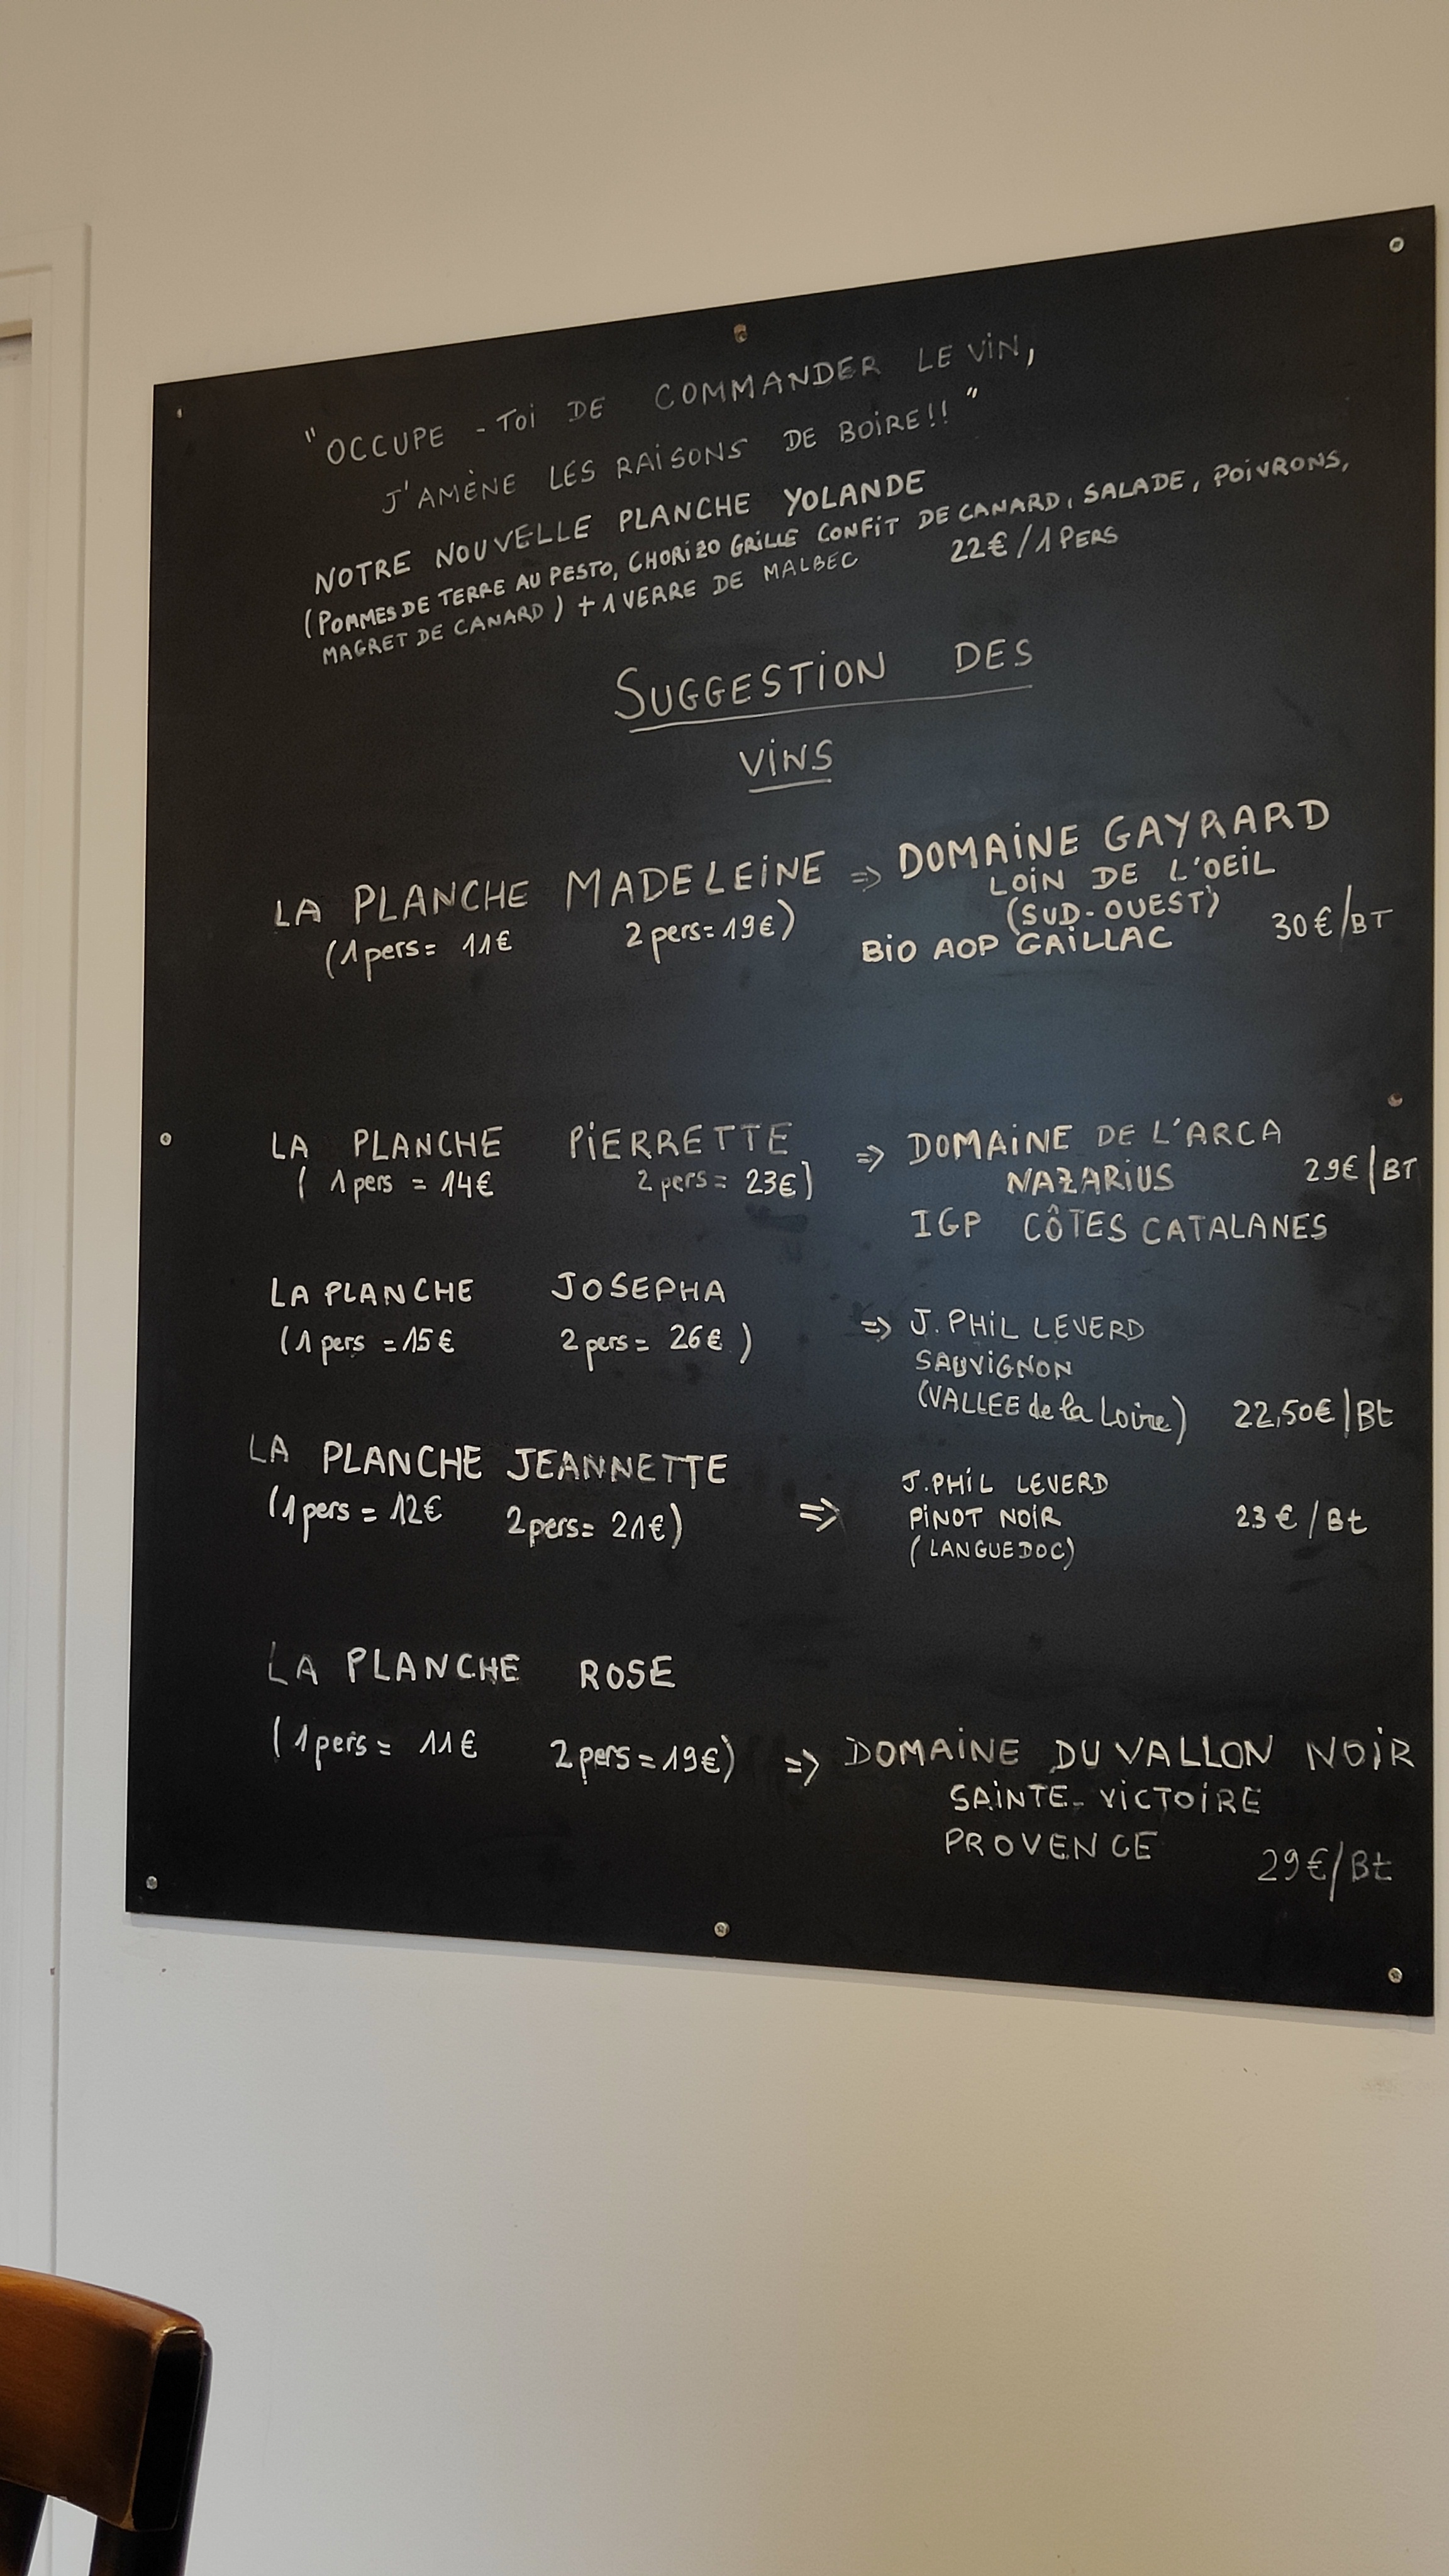 "OCCUPE - TOi DE COMMANDER LE ViN,
J'AMÈNE LES RAiSONS DE BOiRE!! "
NOTRE NOUVELLE PLANCHE YOLANDE
(POMMES DE TERRE AU PESTO, CHORiZO GRiLLÉ CONFiT DE CANARD, SALADE, POiVRONS,
MAGRET DE CANARD) + 1 VERRE DE MALBEC 22€/1 PERS
SUGGESTiON DES
ViNS
LA PLANCHE MADELEiNE => DOMAiNE GAYRARD
LOiN DE L'OEiL
(1 pers = 11€ 2 pers = 19€) (SUD-OUEST)
BiO AOP GAiLLAC 30€/BT
LA PLANCHE PiERRETTE => DOMAiNE DE L'ARCA
( 1 pers = 14€ 2 pers = 23€) NAZARiUS 29€/BT
IGP CÔTES CATALANES
LA PLANCHE JOSEPHA
(1 pers = 15€ 2 pers = 26€ ) => J. PHiL LEVERD
SAUViGNON
(VALLEE de la Loire) 22,50€/Bt
LA PLANCHE JEANNETTE J. PHiL LEVERD
(1 pers = 12€ 2 pers = 21€) => PiNOT NOiR 23 € / Bt
( LANGUEDOC)
LA PLANCHE ROSE
( 1 pers = 11€ 2 pers = 19€) => DOMAiNE DU VALLON NOiR
SAiNTE-ViCTOiRE
PROVENCE 29€/Bt